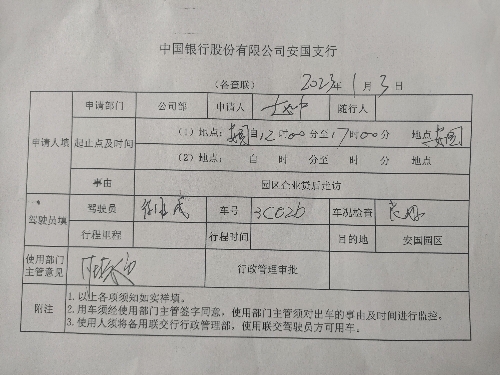 中国银行股份有限公司安国支行
(备查联) 2023年1月3日
申请部门 公司部 申请人 随行人
申请人填 起止点及时间 (1) 地点: 安国 自12时00分至17时00分 地点 安国
(2) 地点: 自 时 分至 时 分 地点
事由 园区企业贷后走访
驾驶员填 驾驶员 车号 3C026 车况检查 良好
行程里程 行程时间 目的地 安国园区
使用部门主管意见 行政管理审批
附注 1.以上各项须知如实祥填。
2.用车须经使用部门主管签字同意,使用部门主管须对出车的事由及时间进行监控。
3.使用人须将备用联交行政管理部,使用联交驾驶员方可用车。